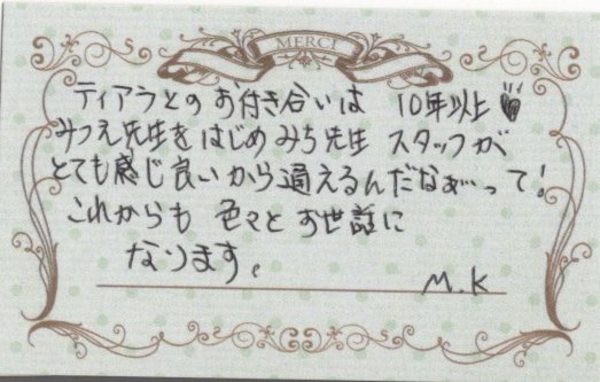 MERCI
ティアラとのお付き合いは 10年以上♥
みつえ先生をはじめみち先生 スタッフが
とても感じ良いから通えるんだなぁって!
これからも 色々とお世話に
なります。
M.K